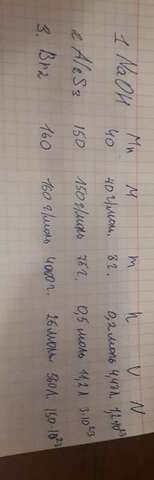 Mr M m n V N
1 NaOH 40 40 г/моль 8г. 0,2 моль 4,48л 1,2·10²³
2 Al2S3 150 150 г/моль 75 г. 0,5 моль 11,2 л 3·10²³
3. Br2 160 160 г/моль 4000 г. 25 моль 560 л 150·10²³